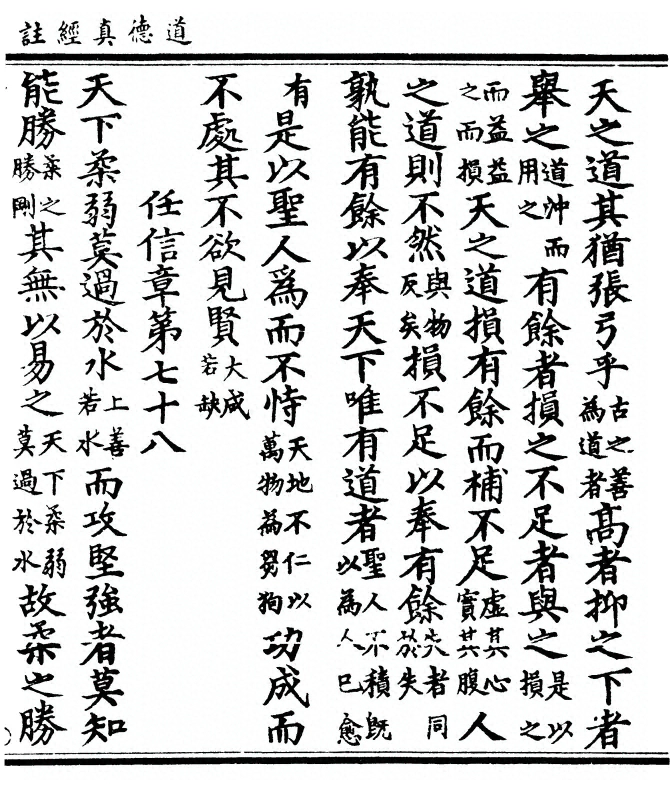 道德真經註
天之道其猶張弓乎古之善為道者高者抑之下者
舉之道沖而用之有餘者損之不足者與之是以損之
而益益之而損天之道損有餘而補不足虛其心實其腹人
之道則不然與物反矣損不足以奉有餘失者同於失
孰能有餘以奉天下唯有道者聖人不積既以為人已愈
有是以聖人為而不恃天地不仁以萬物為芻狗功成而
不處其不欲見賢大成若缺
任信章第七十八
天下柔弱莫過於水上善若水而攻堅強者莫知
能勝柔之勝剛其無以易之天下柔弱莫過於水故柔之勝